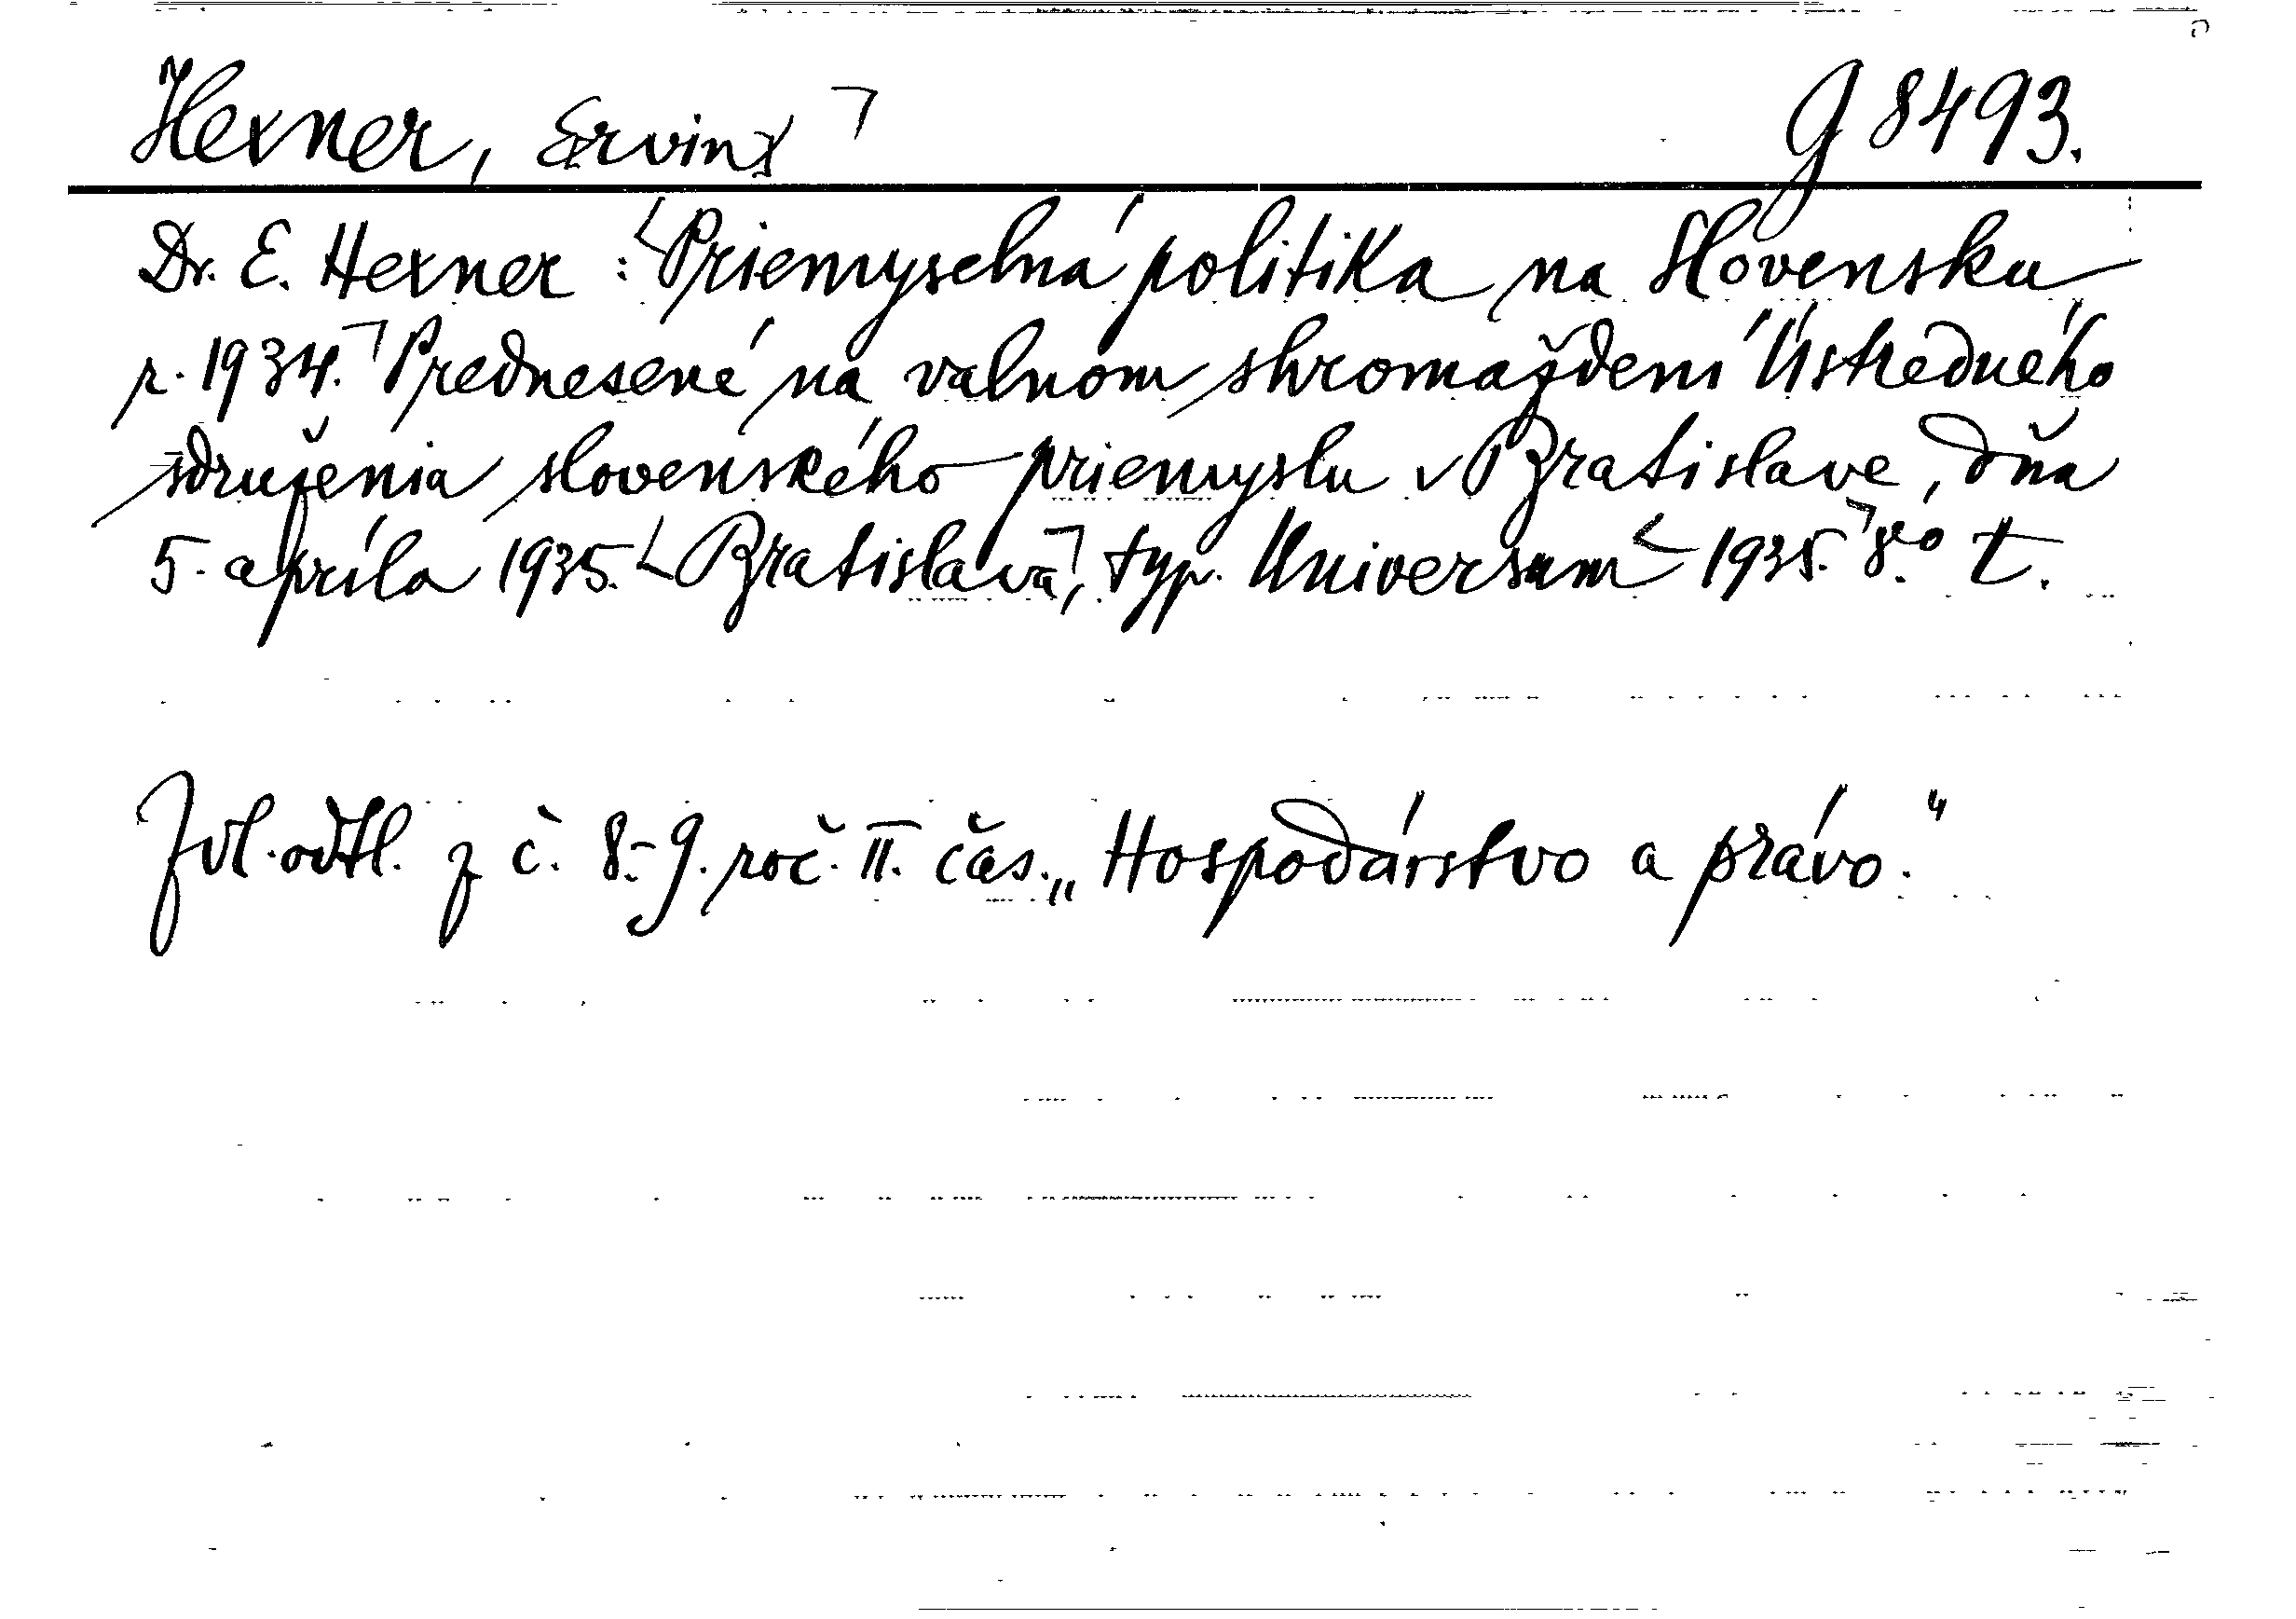 Hexner, Ervin G 8493.
Dr. E. Hexner: Priemyselná politika na Slovensku
r. 1934. Prednesené na valnom shromaždení Ústredného
sdruženia slovenského priemyslu v Bratislave, dňa
5. apríla 1935. Bratislava, typ. Universum 1935. 8.° t.
Zvl. odtl. z č. 8.-9. roč. II. čas. „Hospodárstvo a právo."